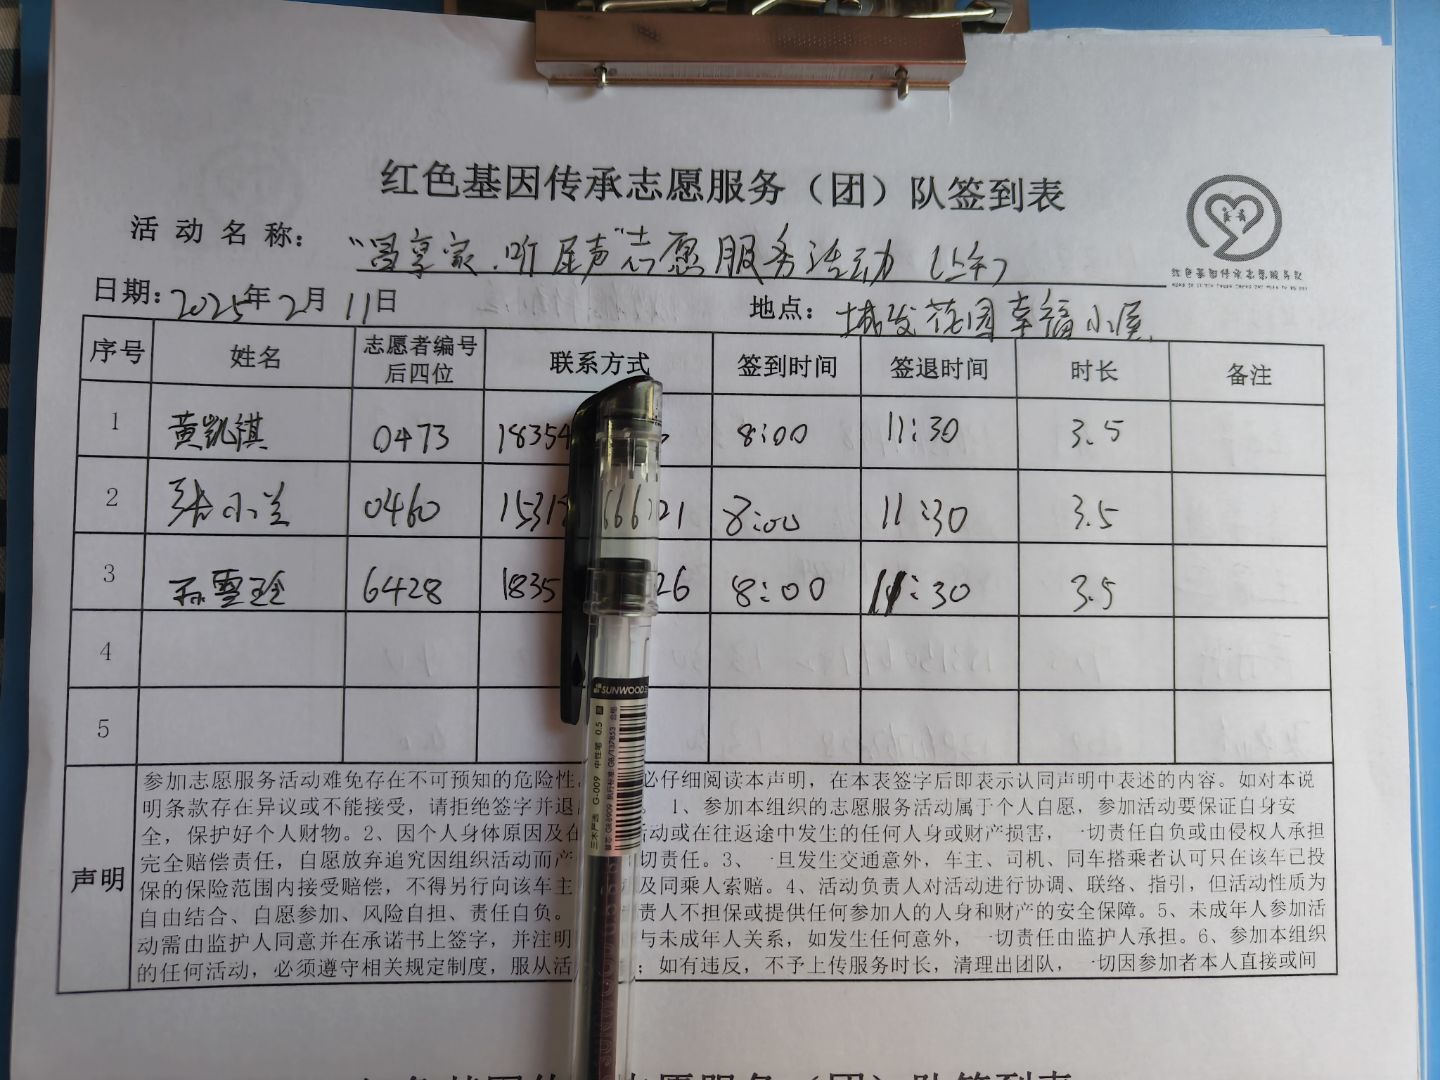 红色基因传承志愿服务（团）队签到表
活动名称：“冒享家.听尾声”志愿服务活动（上午）
红色基因传承志愿服务队
日期：2025年2月11日 地点：城发花园幸福小屋.
序号 姓名 志愿者编号后四位 联系方式 签到时间 签退时间 时长 备注
1 黄凯祺 0473 18354 8:00 11:30 3.5
2 张小兰 0460 1531 666 21 8:00 11:30 3.5
3 孙雪玲 6428 1835 26 8:00 11:30 3.5
4
5
SUNWOOD
三木严选 G-009 中性笔 0.5
声明
参加志愿服务活动难免存在不可预知的危险性 必仔细阅读本声明，在本表签字后即表示认同声明中表述的内容。如对本说
明条款存在异议或不能接受，请拒绝签字并退 1、参加本组织的志愿服务活动属于个人自愿，参加活动要保证自身安
全，保护好个人财物。2、因个人身体原因及在 活动或在往返途中发生的任何人身或财产损害，一切责任自负或由侵权人承担
完全赔偿责任，自愿放弃追究因组织活动而产 切责任。3、一旦发生交通意外，车主、司机、同车搭乘者认可只在该车已投
保的保险范围内接受赔偿，不得另行向该车主 及同乘人索赔。4、活动负责人对活动进行协调、联络、指引，但活动性质为
自由结合、自愿参加、风险自担、责任自负。 责人不担保或提供任何参加人的人身和财产的安全保障。5、未成年人参加活
动需由监护人同意并在承诺书上签字，并注明 与未成年人关系，如发生任何意外，一切责任由监护人承担。6、参加本组织
的任何活动，必须遵守相关规定制度，服从活 ；如有违反，不予上传服务时长，清理出团队，一切因参加者本人直接或间